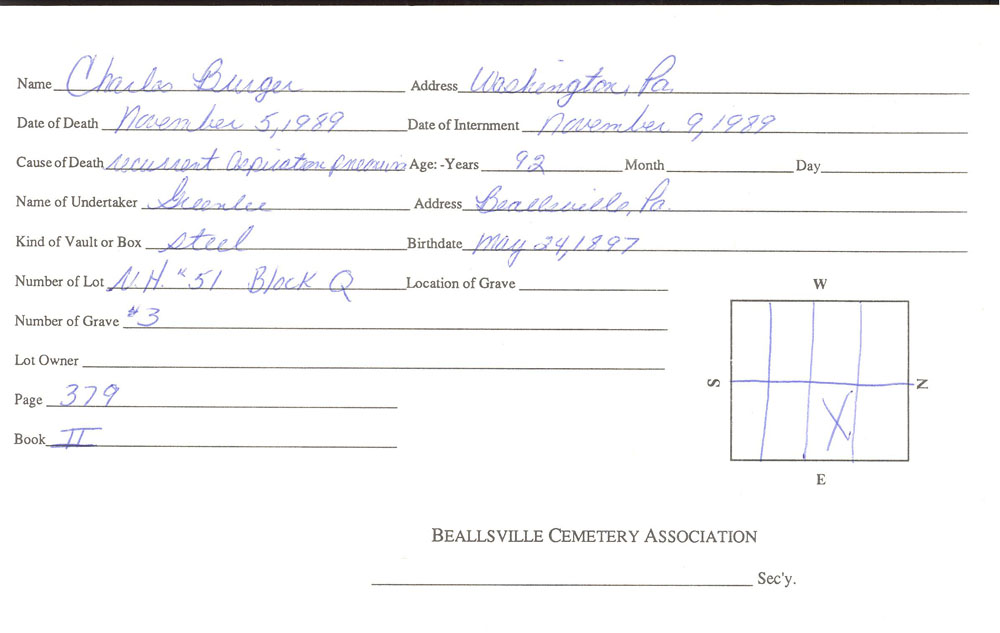 Name Charles Burger Address Washington, Pa.
Date of Death November 5, 1989 Date of Internment November 9, 1989
Cause of Death recurrent aspiration pneumonia Age: -Years 92 Month Day
Name of Undertaker Greenlee Address Beallsville, Pa.
Kind of Vault or Box Steel Birthdate May 24, 1897
Number of Lot N.H. #51 Block Q Location of Grave
Number of Grave #3
Lot Owner
Page 379
Book II
W
S N
X
E
BEALLSVILLE CEMETERY ASSOCIATION
Sec'y.